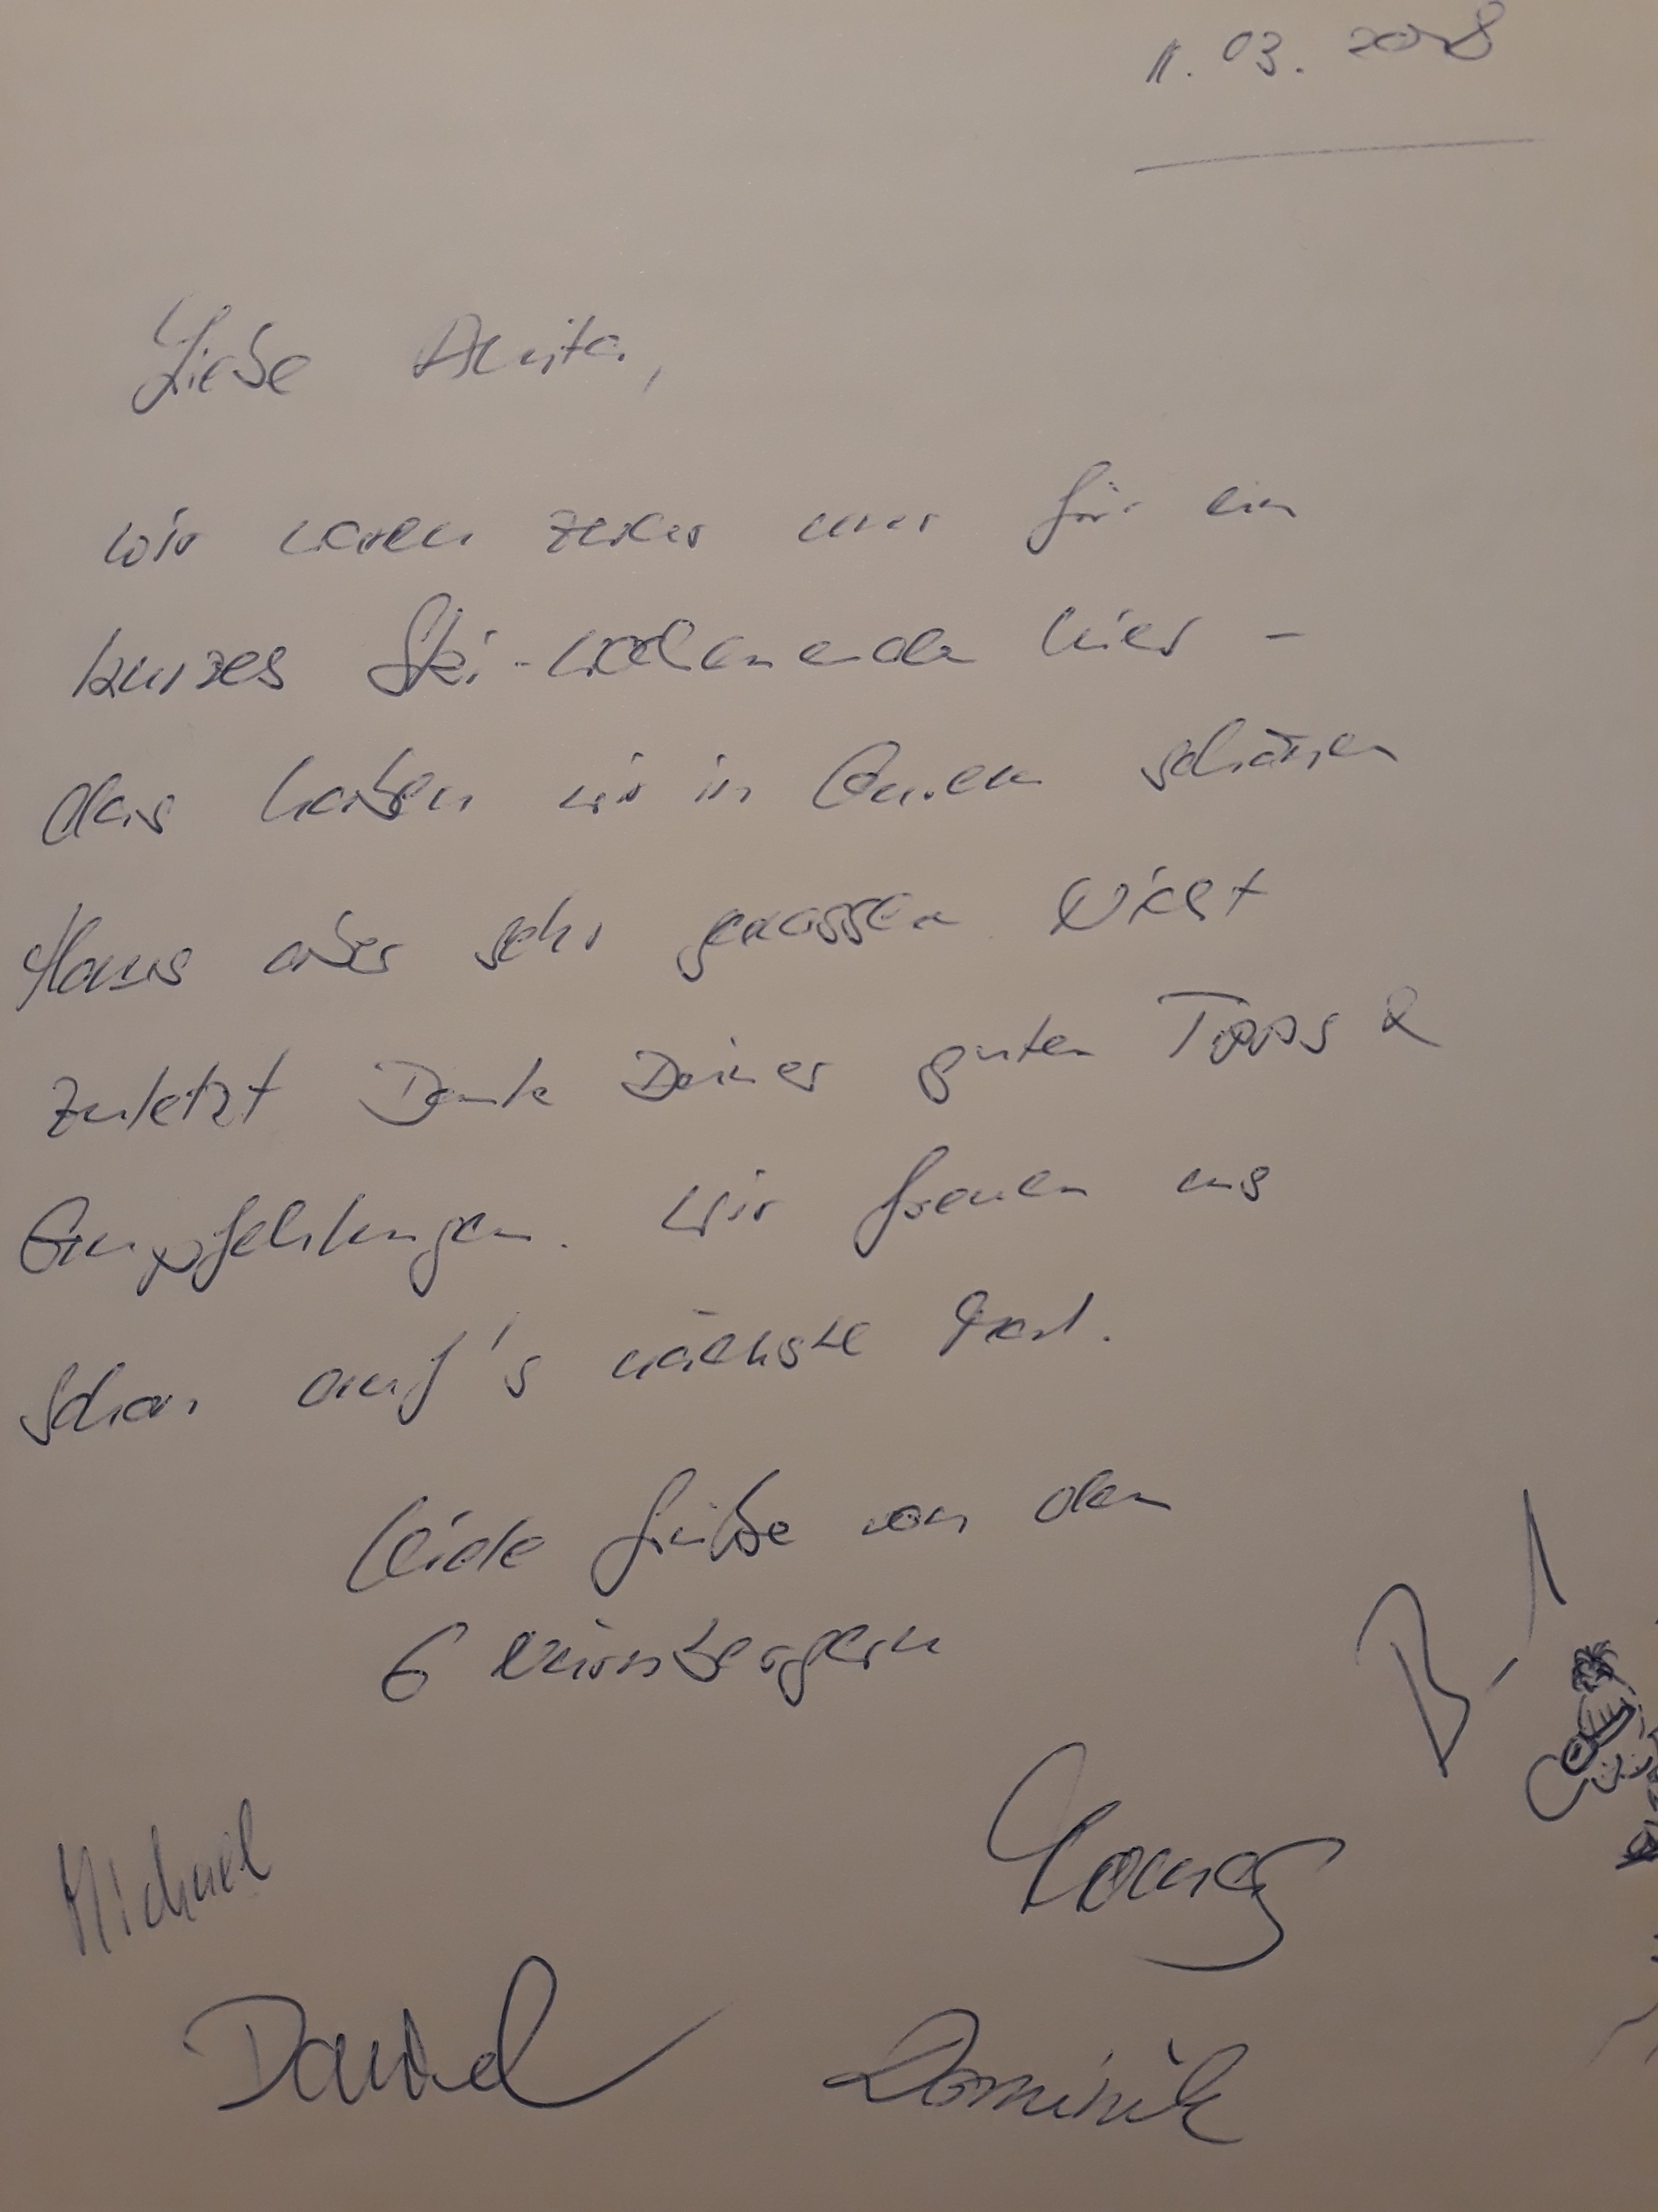 11.03.2018
Liebe Anita,
wir waren zwar nur für ein
kurzes Ski-Wochenende hier -
das haben wir in Eurem schönen
Haus aber sehr genossen. Nicht
zuletzt Dank Deiner guten Tipps &
Empfehlungen. Wir freuen uns
schon auf's nächste Mal.
Viele Grüße von den
6 Nürnbergern
Michael
Daniel
Dominik